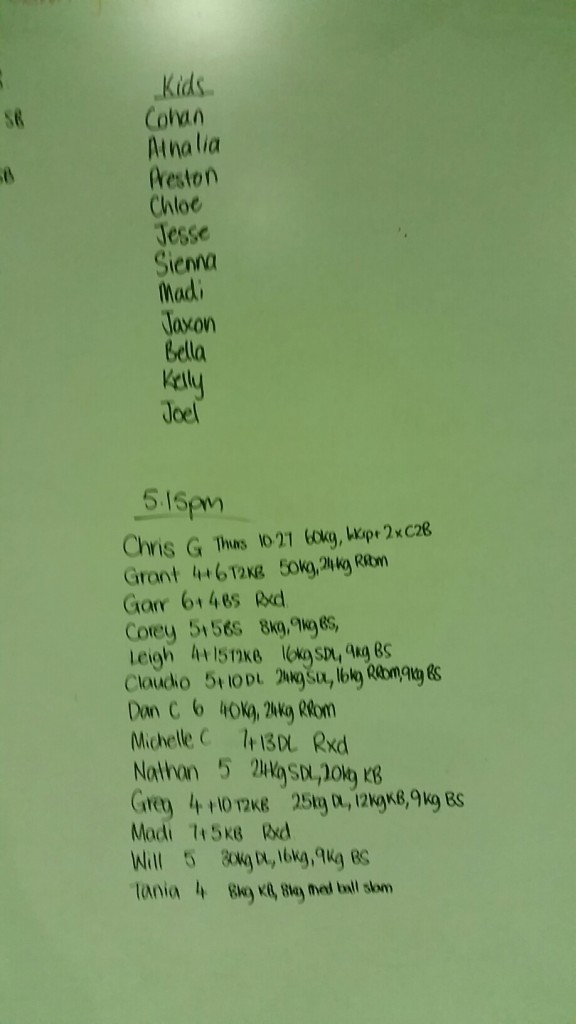 SB
Kids
Cohan
Athalia
Preston
Chloe
Jesse
Sienna
Madi
Jaxon
Bella
Kelly
Joel
5.15pm
Chris G Thurs 10.27 60kg, 2xC2B
Grant 4+6T2KB 50kg, 24kg RRom
Garr 6+4BS Rxd
Corey 5+5BS 8kg, 9kg BS,
Leigh 4+15T2KB 16kg SDL, 9kg BS
Claudio 5+10DL 24kg SDL, 16kg RRom, 9kg BS
Dan C 6 40kg, 24kg RRom
Michelle C 7+13DL Rxd
Nathan 5 24kg SDL, 20kg KB
Greg 4+10T2KB 25kg DL, 12kg KB, 9kg BS
Madi 7+5KB Rxd
Will 5 30kg DL, 16kg, 9kg BS
Tania 4 8kg KB, 8kg med ball slam